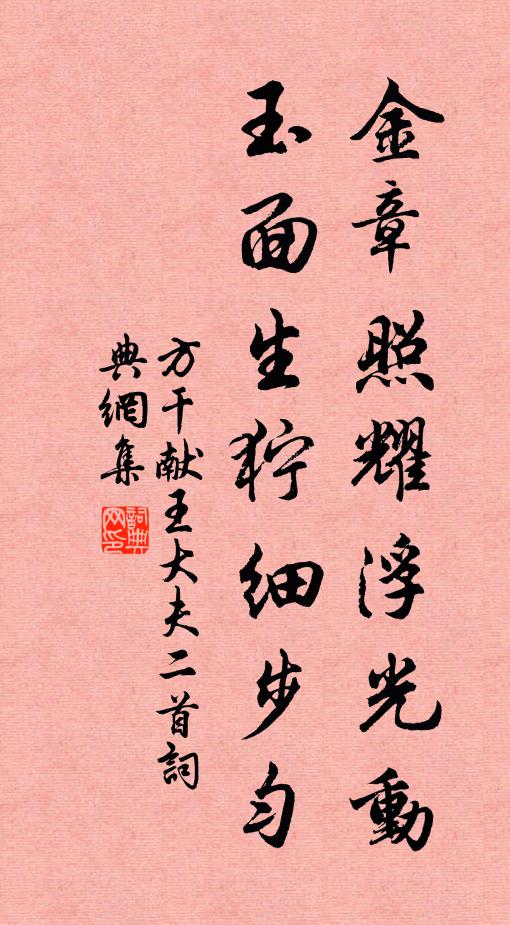 金章照耀浮光動
玉面生狞細步匀
方干献王大夫二首詞
典網集
詞典網印